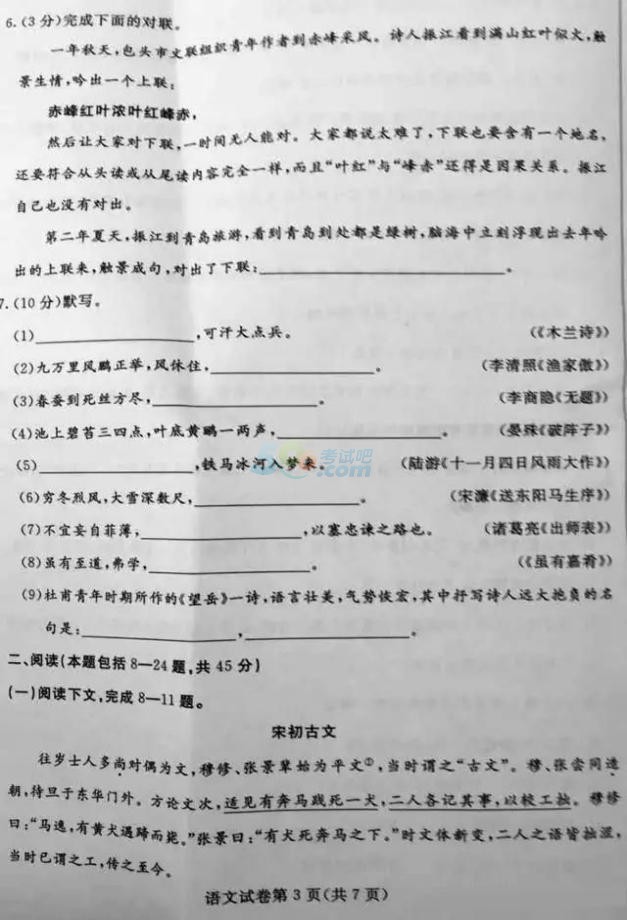 6.(3分)完成下面的对联。
一年秋天,包头市文联组织青年作者到赤峰采风。诗人振江看到满山红叶似火,触
景生情,吟出一个上联:
赤峰红叶浓叶红峰赤,
然后让大家对下联,一时间无人能对。大家都说太难了,下联也要含有一个地名,
还要符合从头读或从尾读内容完全一样,而且“叶红”与“峰赤”还得是因果关系。振江
自己也没有对出。
第二年夏天,振江到青岛旅游,看到青岛到处都是绿树,脑海中立刻浮现出去年吟
出的上联来,触景成句,对出了下联:____________。
7.(10分)默写。
(1)____________,可汗大点兵。 (《木兰诗》)
(2)九万里风鹏正举,风休住,____________。 (李清照《渔家傲》)
(3)春蚕到死丝方尽,____________。 (李商隐《无题》)
(4)池上碧苔三四点,叶底黄鹂一两声,____________。 (晏殊《破阵子》)
(5)____________,铁马冰河入梦来。 (陆游《十一月四日风雨大作》)
(6)穷冬烈风,大雪深数尺,____________。 (宋濂《送东阳马生序》)
(7)不宜妄自菲薄,____________,以塞忠谏之路也。 (诸葛亮《出师表》)
(8)虽有至道,弗学,____________。 (《虽有嘉肴》)
(9)杜甫青年时期所作的《望岳》一诗,语言壮美,气势恢宏,其中抒写诗人远大抱负的名
句是:____________,____________。
考试吧
.com
二、阅读(本题包括8—24题,共45分)
(一)阅读下文,完成8—11题。
宋初古文
往岁士人多尚对偶为文,穆修、张景辈始为平文①,当时谓之“古文”。穆、张尝同造
朝,待旦于东华门外。方论文次,适见有奔马践死一犬,二人各记其事,以较工拙。穆修
曰:“马逸,有黄犬遇蹄而毙。”张景曰:“有犬死奔马之下。”时文体新变,二人之语皆拙涩,
当时已谓之工,传之至今。
语文试卷第3页(共7页)